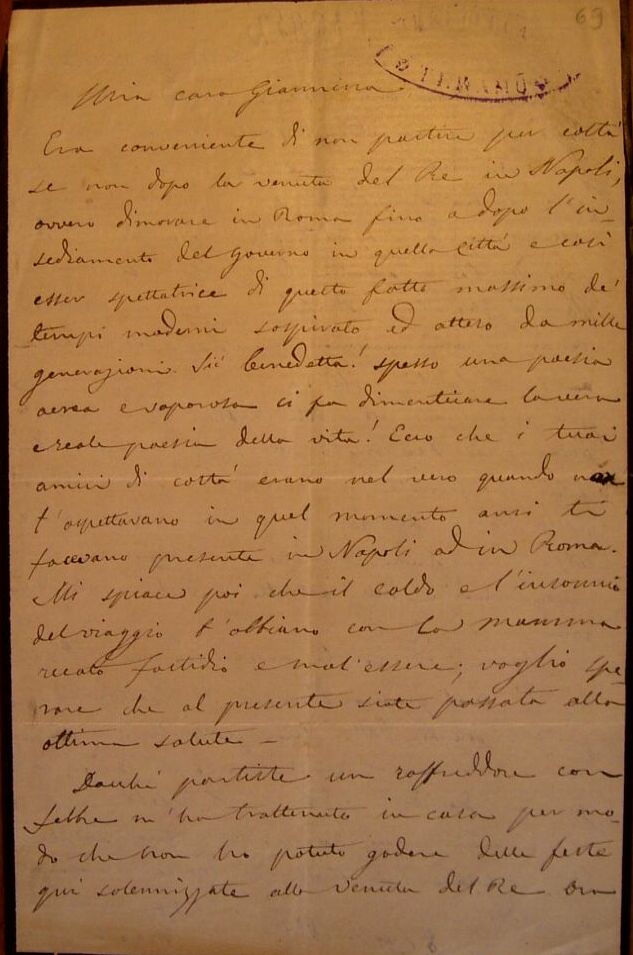 69
Mia cara Giannina
Era conveniente di non partire per costà
se non dopo la venuta del Re in Napoli,
ovvero dimorare in Roma fino a dopo l'in-
sediamento del governo in quella città e così
esser spettatrice di questo fatto massimo de'
tempi moderni sospirato ed atteso da mille
generazioni. Sii benedetta! spesso una poesia
aerea e vaporosa ci fa dimenticare la vera
e reale poesia della vita! Ecco che i tuoi
amici di costà erano nel vero quando non
t'aspettavano in quel momento anzi ti
facevano presente in Napoli od in Roma.
Mi spiace poi che il caldo e l'insonnio
del viaggio t'abbiano con la mamma
recato fastidio e mal'essere; voglio spe-
rare che al presente siate passata alla
ottima salute —
Dacché partiste un raffreddore con
febbre m'ha trattenuto in casa per mo-
do che non ho potuto godere delle feste
qui solennizzate alla venuta del Re